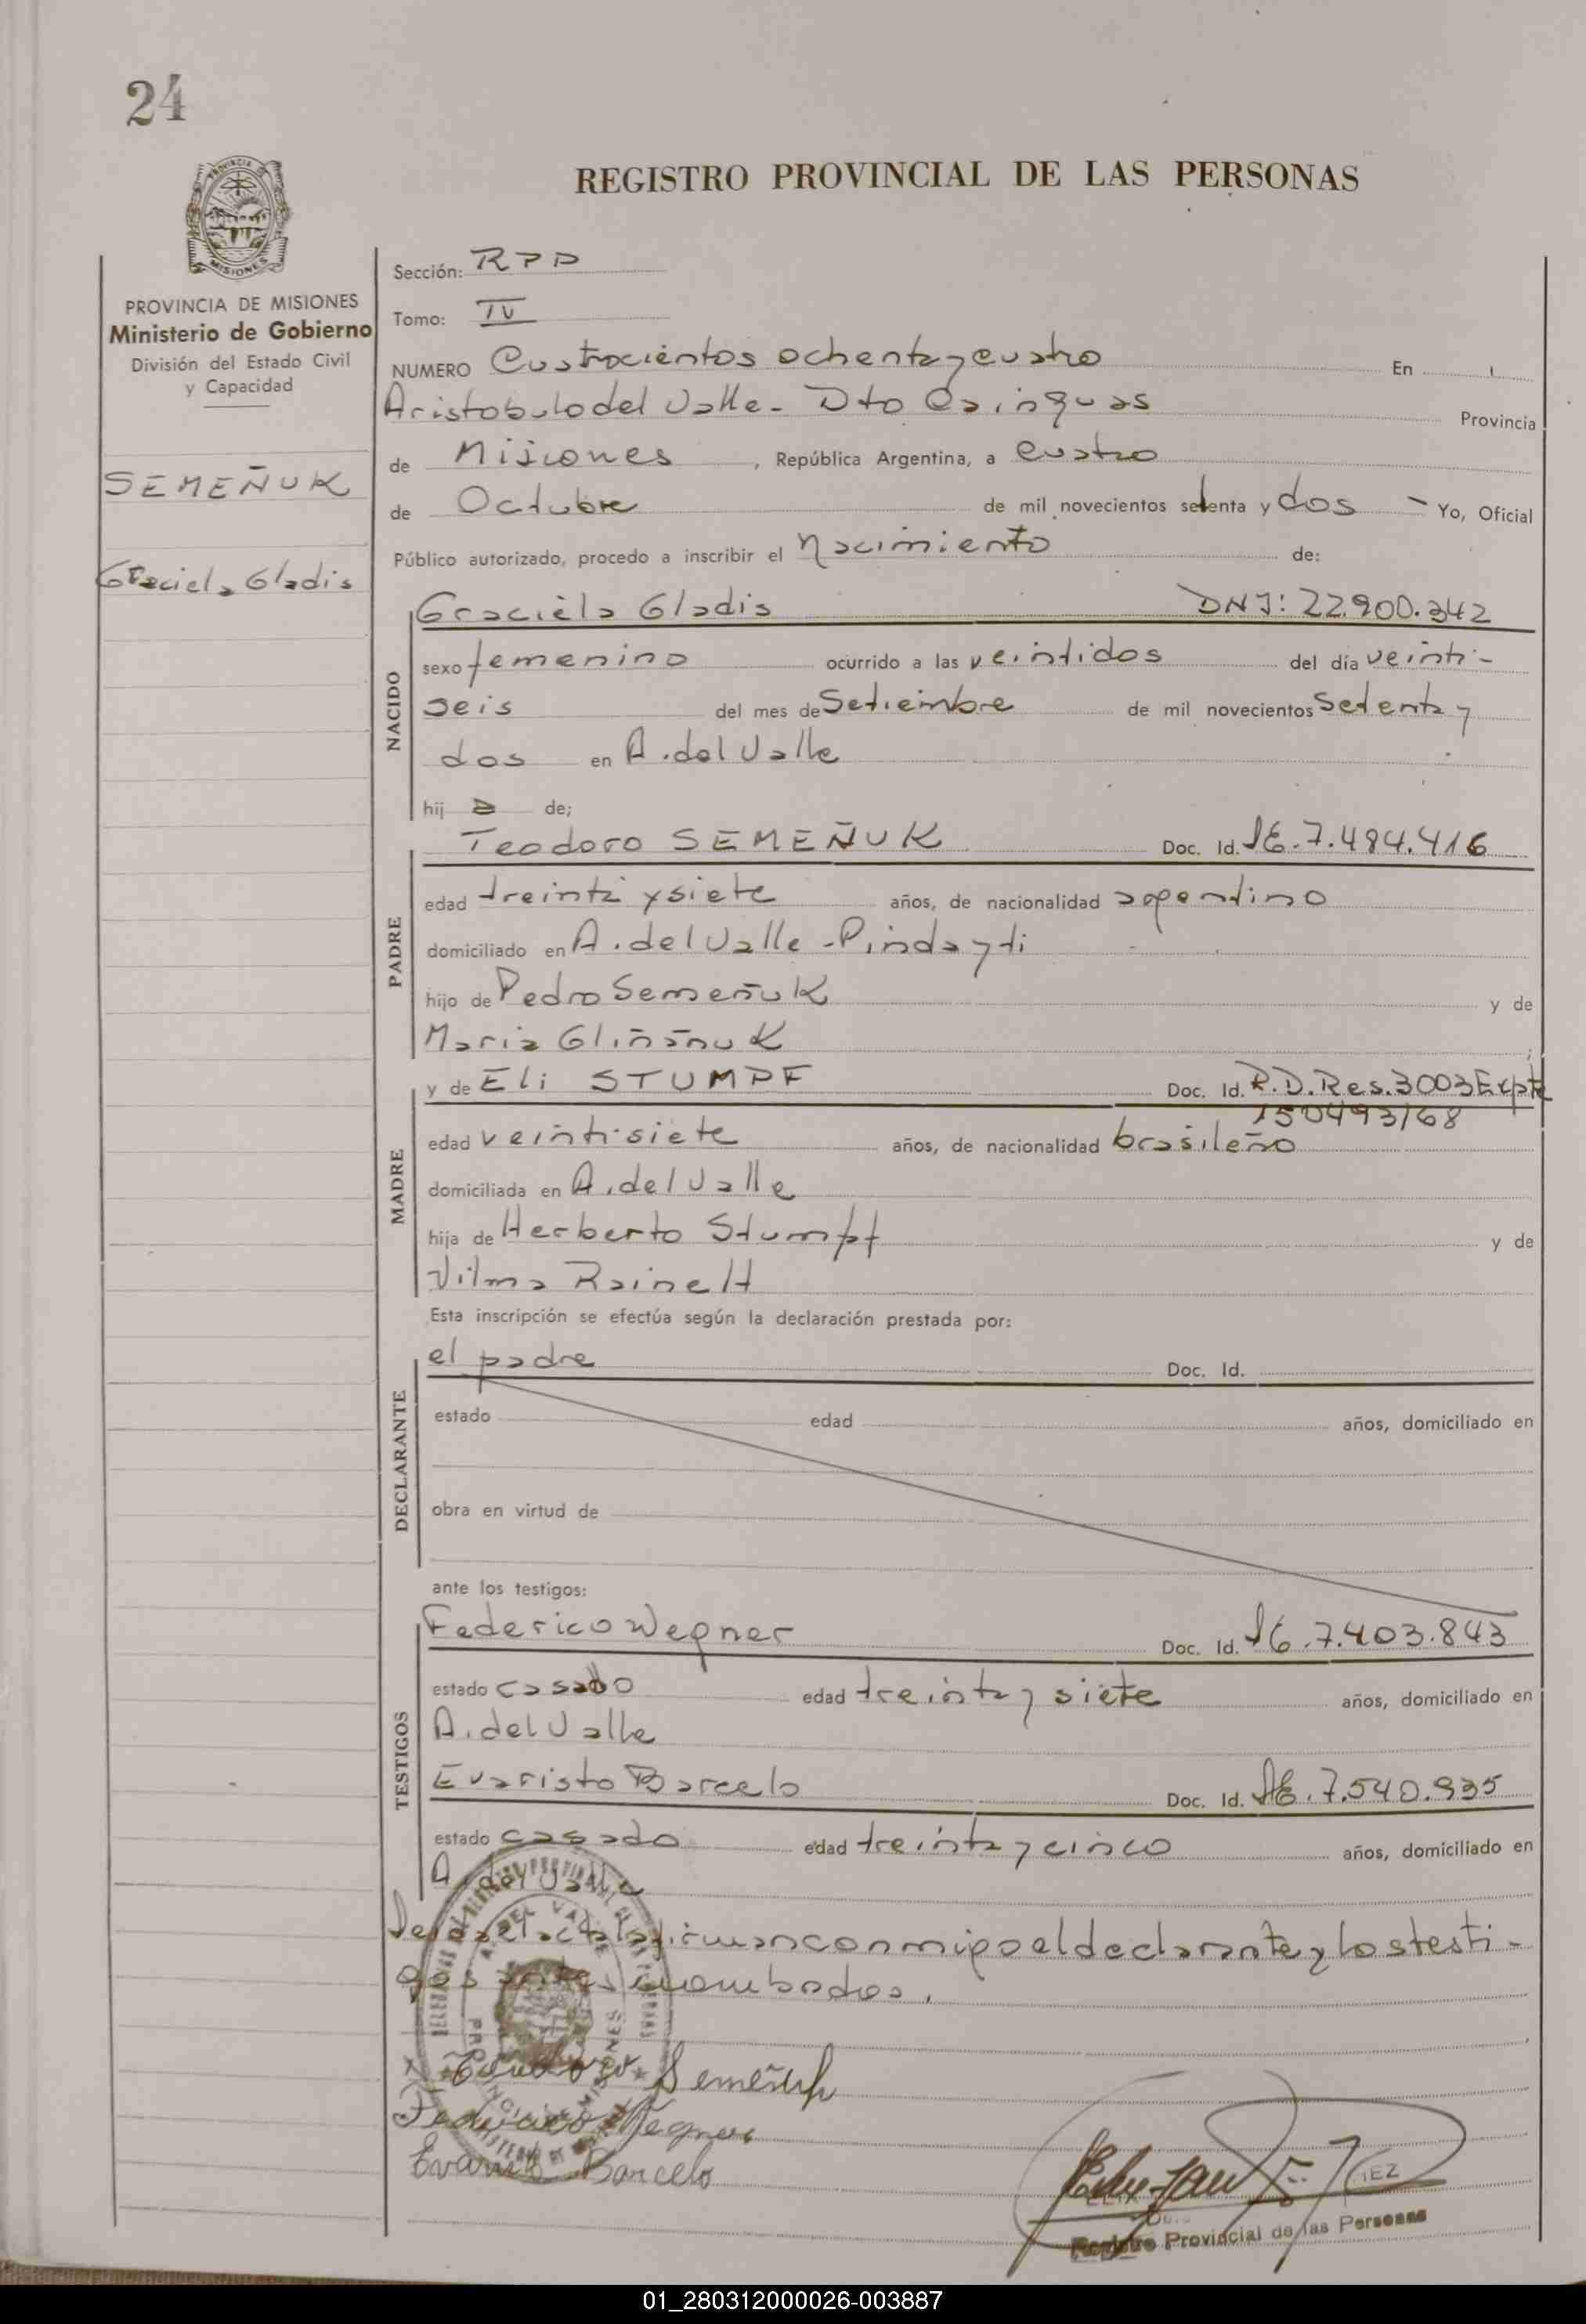 24
REGISTRO PROVINCIAL DE LAS PERSONAS
PROVINCIA DE MISIONES
Ministerio de Gobierno
División del Estado Civil
y Capacidad
SEMEÑUK
Graciela Gladis
Sección: RPP
Tomo: IV
NUMERO Cuatrocientos ochenta y cuatro En
Aristobulo del Valle - Dto Cainguas Provincia
de Misiones, República Argentina, a cuatro
de Octubre de mil novecientos setenta y dos - Yo, Oficial
Público autorizado, procedo a inscribir el Nacimiento de:
NACIDO
Graciela Gladis DNI: 22.900.342
sexo femenino ocurrido a las veintidos del día veinti-
seis del mes de Setiembre de mil novecientos Setenta y
dos en A. del Valle
hij a de;
PADRE
Teodoro SEMEÑUK Doc. Id. I6.7.484.416
edad treinta y siete años, de nacionalidad argentino
domiciliado en A. del Valle - Pindayti
hijo de Pedro Semeñuk y de
Maria Gliñanuk ;
MADRE
y de Eli STUMPF Doc. Id. R.D.Res.3003 Expte
150493/68
edad veintisiete años, de nacionalidad brasileño
domiciliada en A. del Valle
hija de Herberto Stumpf y de
Vilma Rainelt
Esta inscripción se efectúa según la declaración prestada por:
DECLARANTE
el padre Doc. Id.
estado edad años, domiciliado en
obra en virtud de
ante los testigos:
TESTIGOS
Federico Wegner Doc. Id. I6.7.403.843
estado casado edad treinta y siete años, domiciliado en
A. del Valle
Evaristo Barcelo Doc. Id. I6.7.540.935
estado casado edad treinta y cinco años, domiciliado en
A. del Valle
Leida el acta la firman conmigo el declarante y los testi-
gos antes nombados.
Teodoro Semeñuk
Federico Wegner
Evaristo Barcelo
Registro Provincial de las Personas
01_280312000026-003887